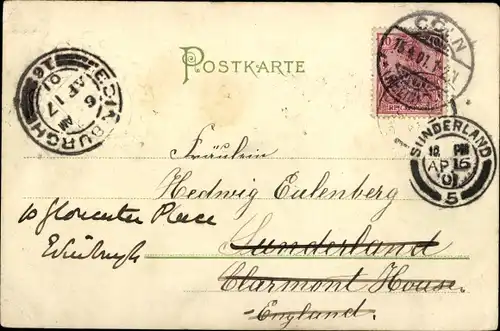 POSTKARTE
CÖLN
16.4.01.
SUNDERLAND
12 PM
AP 16
01
5
EDINBURGH
6 AM
AP 17
01
Fräulein
Hedwig Eulenberg
10 Gloucester Place
Edinburgh
Sunderland
Clarmont House.
England.